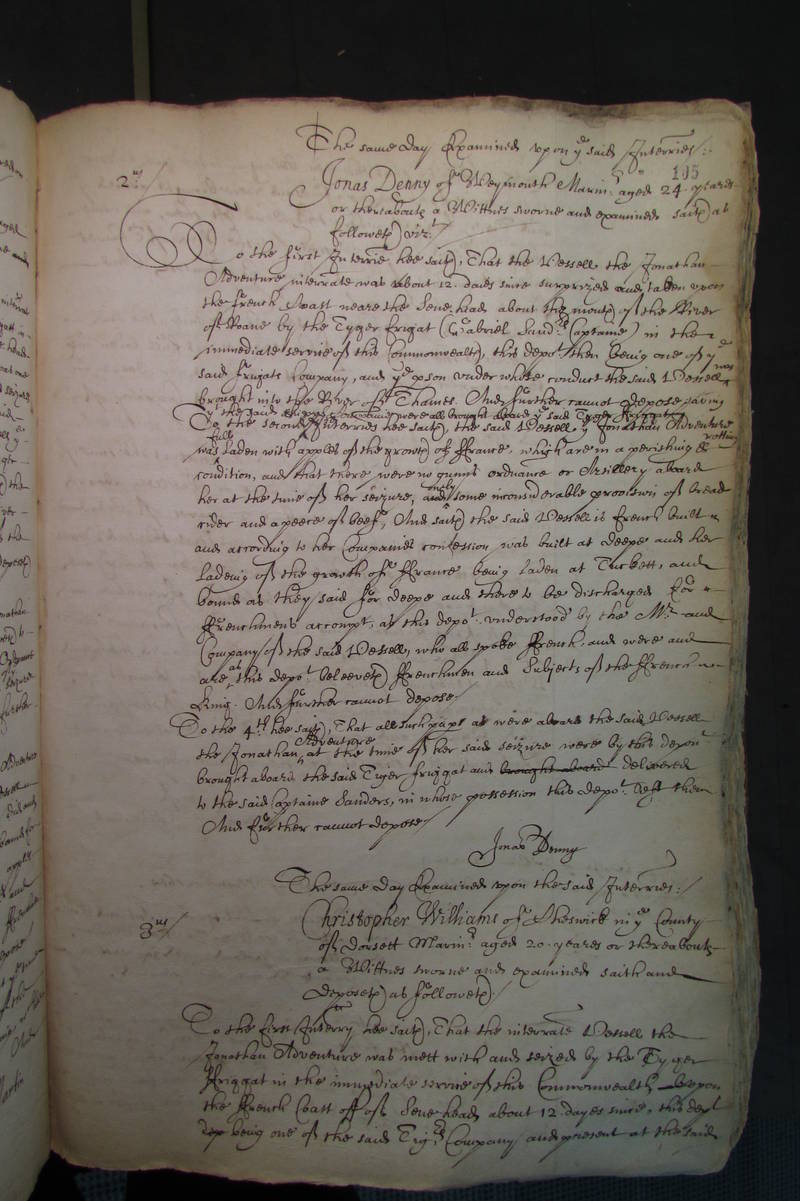 The same day Examined upon ye said Interries:
105
2us/
Jonas Denny of Weymouth Marinr aged 24 yeares
or thereabouts a Wittnes sworne and examined saith as
followeth vizt
To the first Interrie hee saith, That the Vessell the Jonathan
Adventure interrate was about 12 daies since surprized and taken upon
the french Coast neare the Sene head about the mouth of the River
of Roane by the Tyger frigat (Gabriel Sandrs Captaine) in the
immediate service of this Commonwealth, this depot then being one of ye
said frigats Company, and ye pson under whose conduct the said Vessell was
brought into the River of Thames. And further cannot depose saving
yt the said company were all brought aboard ye said Tyger
To the second Interries hee saith, the said Vessell ye Jonathan Adventure
was full laden with apples of the growth of ffrance, which are in a perishing & rotting
condition, and that there were no gunns ordnance or Artillery aboard
her at the time of her seizure, only some inconsiderable provision of bread
cider and a peece of beefe, And saith the said Vessell is french built
and according to her Companies confession was built at deepe and her
ladeing of the growth of ffrance being laden at Tuckett, and
bound as they said for deepe and there to be discharged for
ffrenchmens accompt, as this depot understood by the Mr and
Company of the said Vessell, who all spoke ffrench, and were and
are as this depot beleeveth ffrenchmen and Subjects of the ffrench
King. And further cannot depose
To the 4th hee saith, That all such paps as were aboard the said Vessell
the Jonathan Adventure at the time of her said seizure were by this depont
brought aboard the said Tiger friggat and brought aboard delivered
to the said Captaine Sanders, in whose possession this depot left them
And further cannot depose
Jonas Denny
The same day Examined upon the said Interries:/
3us/
Christopher Williams of Sheswick in ye County
of Dorsett Marinr aged 20 yeares or thereabouts
a Wittnes sworne and examined saith and
deposeth as followeth/
To the first Interry hee saith, That the interrate Vessell the
Jonathan Adventure was mett with and seized by the Tyger
ffriggat in the immediate service of this Commonwealth upon
the ffrench Coast off of Sene head, about 12 dayes since, this dept
dep being one of the said Tigrs Company and present at the said